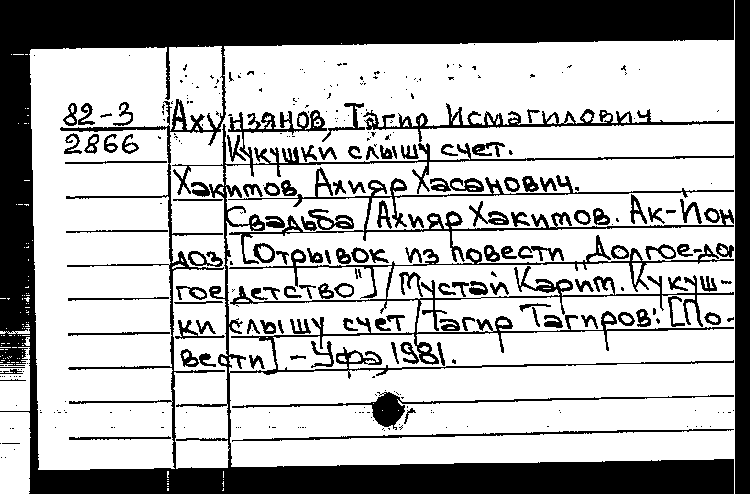 82-3 Ахунзянов, Тагир Исмагилович.
2866 Кукушки слышу счет.
Хакимов, Ахияр Хасанович.
Свадьба / Ахияр Хакимов. Ак-Йон
доз: [Отрывок из повести „Долгое-дол
гое детство"] / Мустай Карим. Кукуш-
ки слышу счет / Тагир Тагиров: [По-
вести]. - Уфа, 1981.